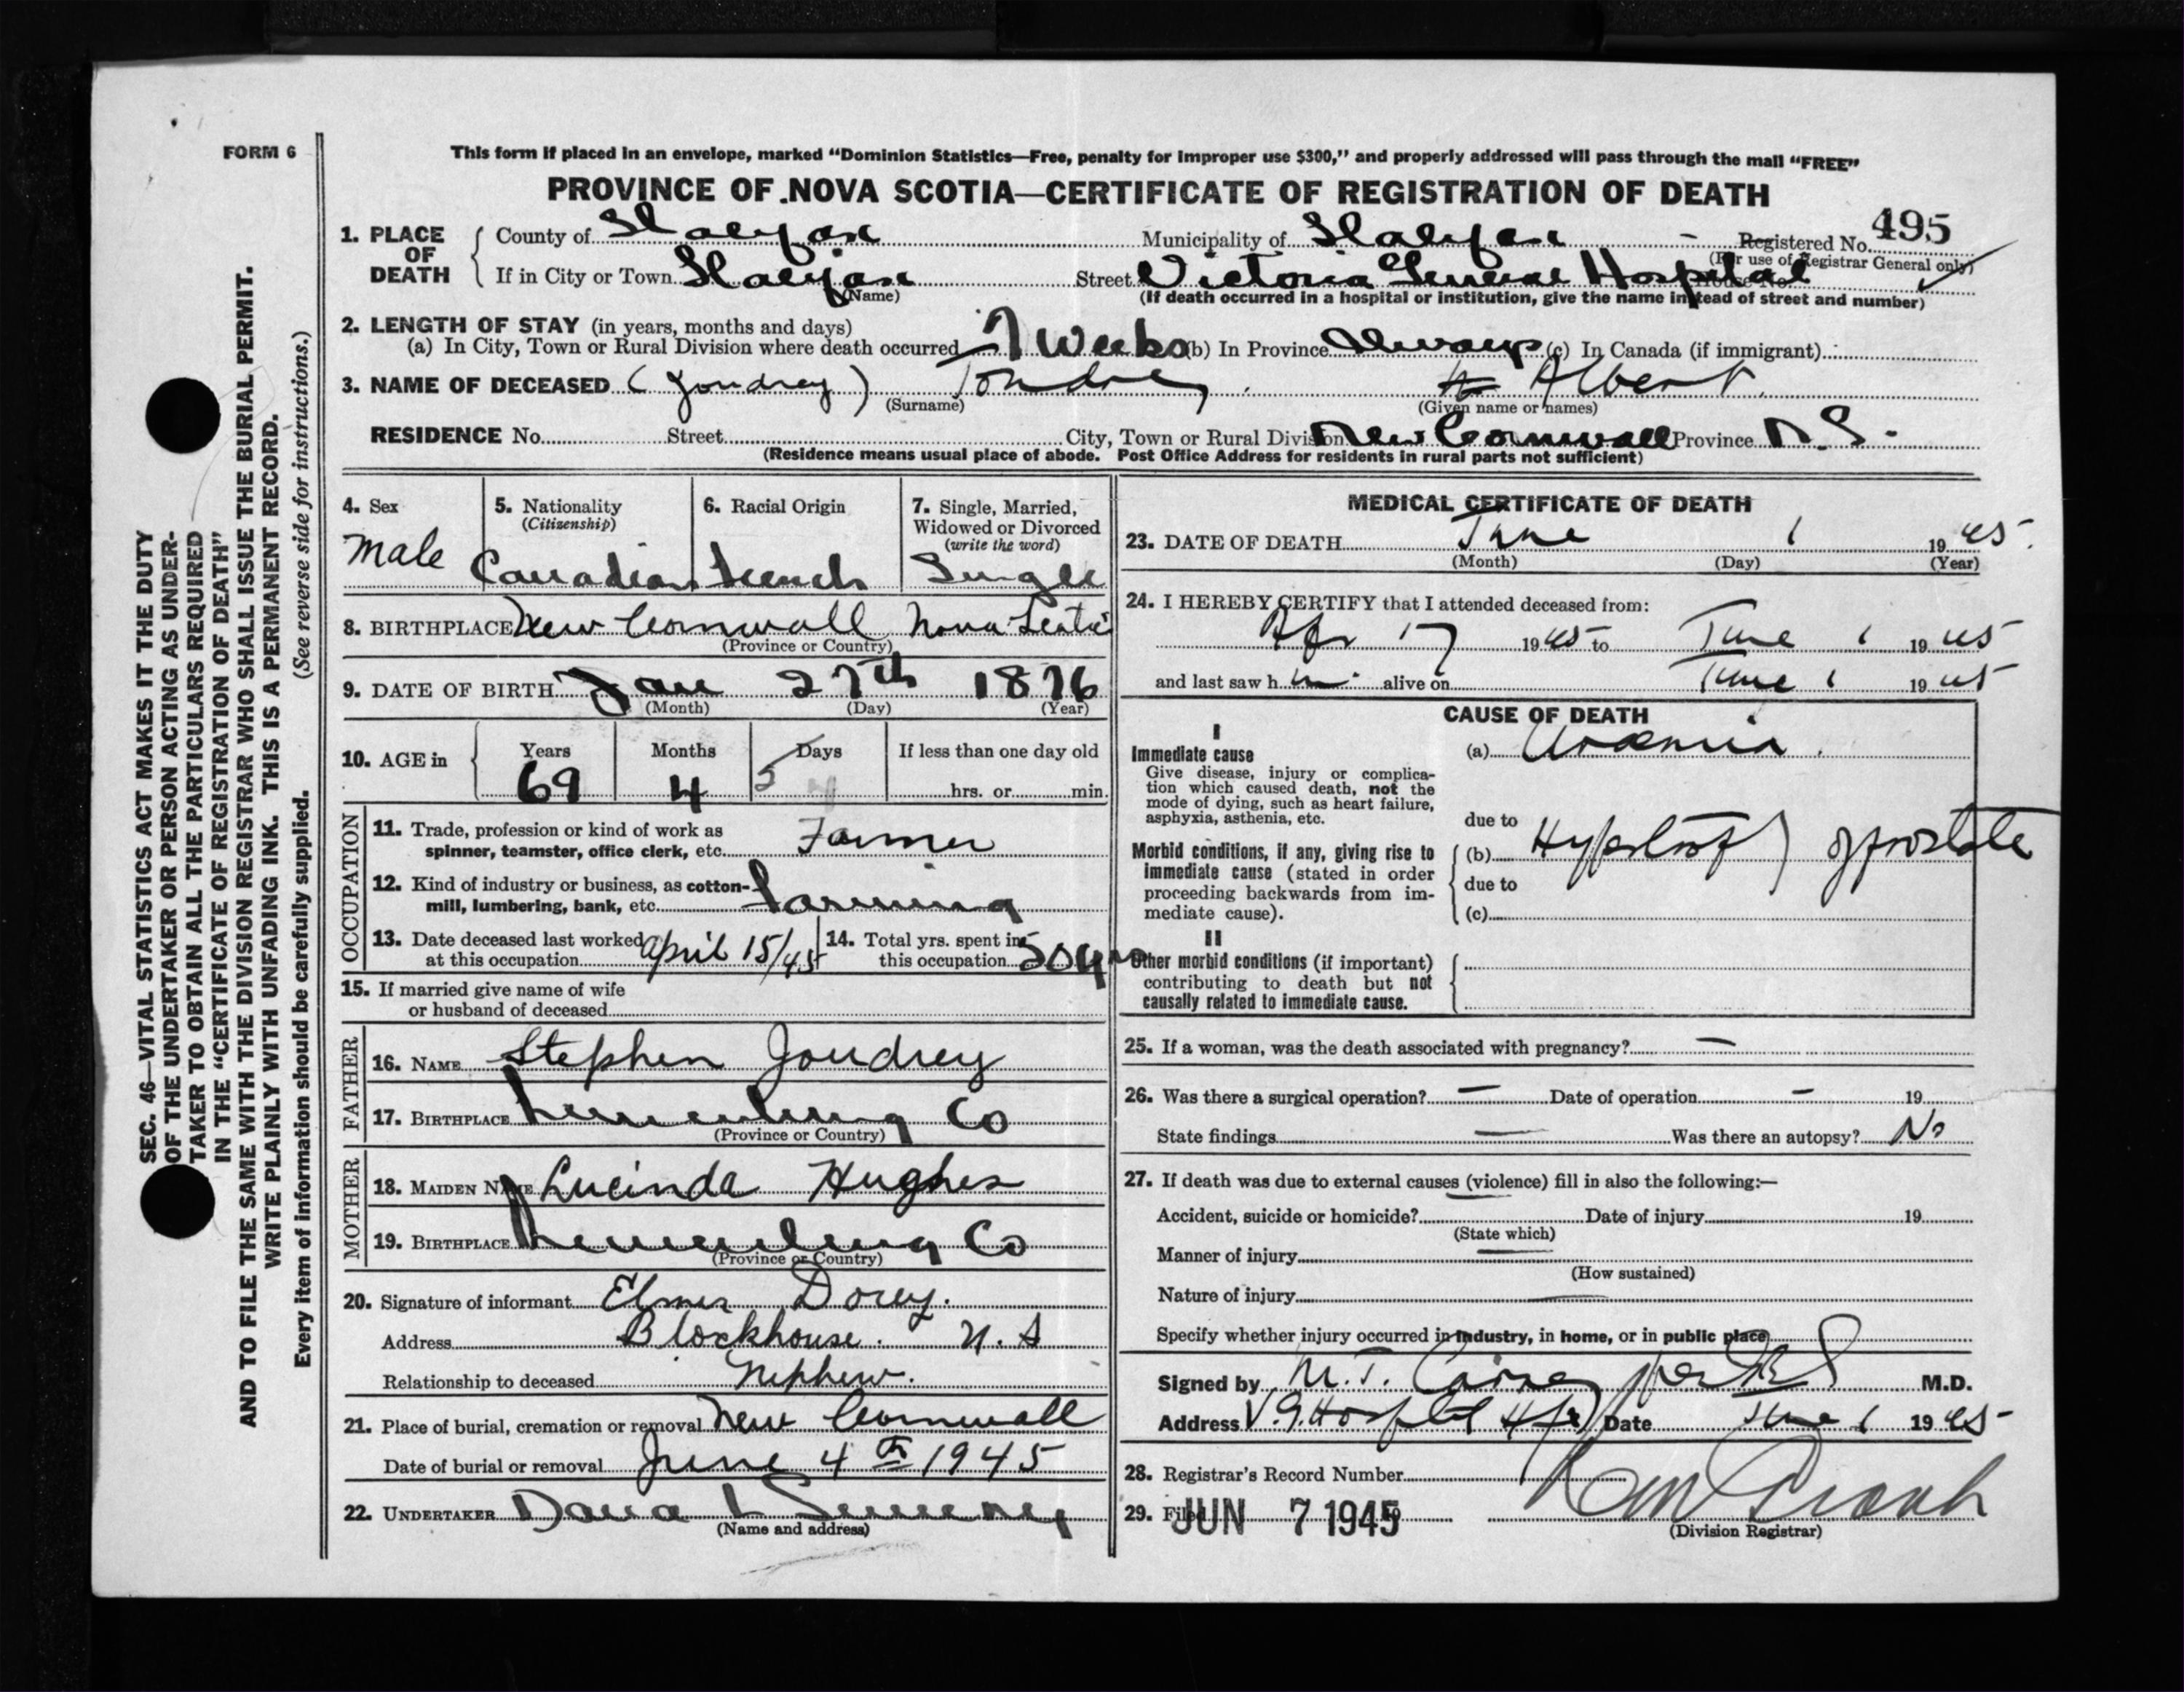 FORM 6
This form if placed in an envelope, marked “Dominion Statistics—Free, penalty for improper use $300,” and properly addressed will pass through the mail “FREE”
PROVINCE OF NOVA SCOTIA—CERTIFICATE OF REGISTRATION OF DEATH
1. PLACE OF DEATH County of Halifax Municipality of Halifax Registered No. 495
(For use of Registrar General only)
If in City or Town Halifax (Name) Street Victoria General Hospital House No.
(If death occurred in a hospital or institution, give the name instead of street and number)
2. LENGTH OF STAY (in years, months and days)
(a) In City, Town or Rural Division where death occurred 7 Weeks (b) In Province Always (c) In Canada (if immigrant)
3. NAME OF DECEASED (Joudrey) Joudrey Albert
(Surname) (Given name or names)
RESIDENCE No. Street City, Town or Rural Division New Cornwall Province N.S.
(Residence means usual place of abode. Post Office Address for residents in rural parts not sufficient)
4. Sex Male
5. Nationality (Citizenship) Canadian
6. Racial Origin French
7. Single, Married, Widowed or Divorced (write the word) Single
8. BIRTHPLACE New Cornwall Nova Scotia
(Province or Country)
9. DATE OF BIRTH Jan 27th 1876
(Month) (Day) (Year)
10. AGE in Years 69 Months 4 Days 5 If less than one day old hrs. or min.
OCCUPATION
11. Trade, profession or kind of work as spinner, teamster, office clerk, etc. Farmer
12. Kind of industry or business, as cotton-mill, lumbering, bank, etc. Farming
13. Date deceased last worked at this occupation April 15/45
14. Total yrs. spent in this occupation 50 yrs
15. If married give name of wife
or husband of deceased
FATHER
16. NAME Stephen Joudrey
17. BIRTHPLACE Lunenburg Co
(Province or Country)
MOTHER
18. MAIDEN NAME Lucinda Hughes
19. BIRTHPLACE Lunenburg Co
(Province or Country)
20. Signature of informant Elmer Dorey.
Address Blockhouse. N.S
Relationship to deceased Nephew.
21. Place of burial, cremation or removal New Cornwall
Date of burial or removal June 4th 1945
22. UNDERTAKER Dana L Sweeny
(Name and address)
MEDICAL CERTIFICATE OF DEATH
23. DATE OF DEATH June 1 1945.
(Month) (Day) (Year)
24. I HEREBY CERTIFY that I attended deceased from:
Apr 17 1945 to June 1 1945
and last saw him alive on June 1 1945
CAUSE OF DEATH
I
Immediate cause
Give disease, injury or complication which caused death, not the mode of dying, such as heart failure, asphyxia, asthenia, etc.
(a) Uraemia.
due to
Morbid conditions, if any, giving rise to immediate cause (stated in order proceeding backwards from immediate cause).
(b) Hypertrophy of prostate
due to
(c)
II
Other morbid conditions (if important) contributing to death but not causally related to immediate cause.
25. If a woman, was the death associated with pregnancy? —
26. Was there a surgical operation? — Date of operation — 19
State findings — Was there an autopsy? No
27. If death was due to external causes (violence) fill in also the following:—
Accident, suicide or homicide? Date of injury 19
(State which)
Manner of injury
(How sustained)
Nature of injury
Specify whether injury occurred in industry, in home, or in public place
Signed by M.D.
Address V.G. Hospital Hfx Date June 1 1945
28. Registrar's Record Number
29. Filed JUN 7 1945
(Division Registrar)
SEC. 46—VITAL STATISTICS ACT MAKES IT THE DUTY
OF THE UNDERTAKER OR PERSON ACTING AS UNDER-
TAKER TO OBTAIN ALL THE PARTICULARS REQUIRED
IN THE “CERTIFICATE OF REGISTRATION OF DEATH”
AND TO FILE THE SAME WITH THE DIVISION REGISTRAR WHO SHALL ISSUE THE BURIAL PERMIT.
WRITE PLAINLY WITH UNFADING INK. THIS IS A PERMANENT RECORD.
Every item of information should be carefully supplied. (See reverse side for instructions.)